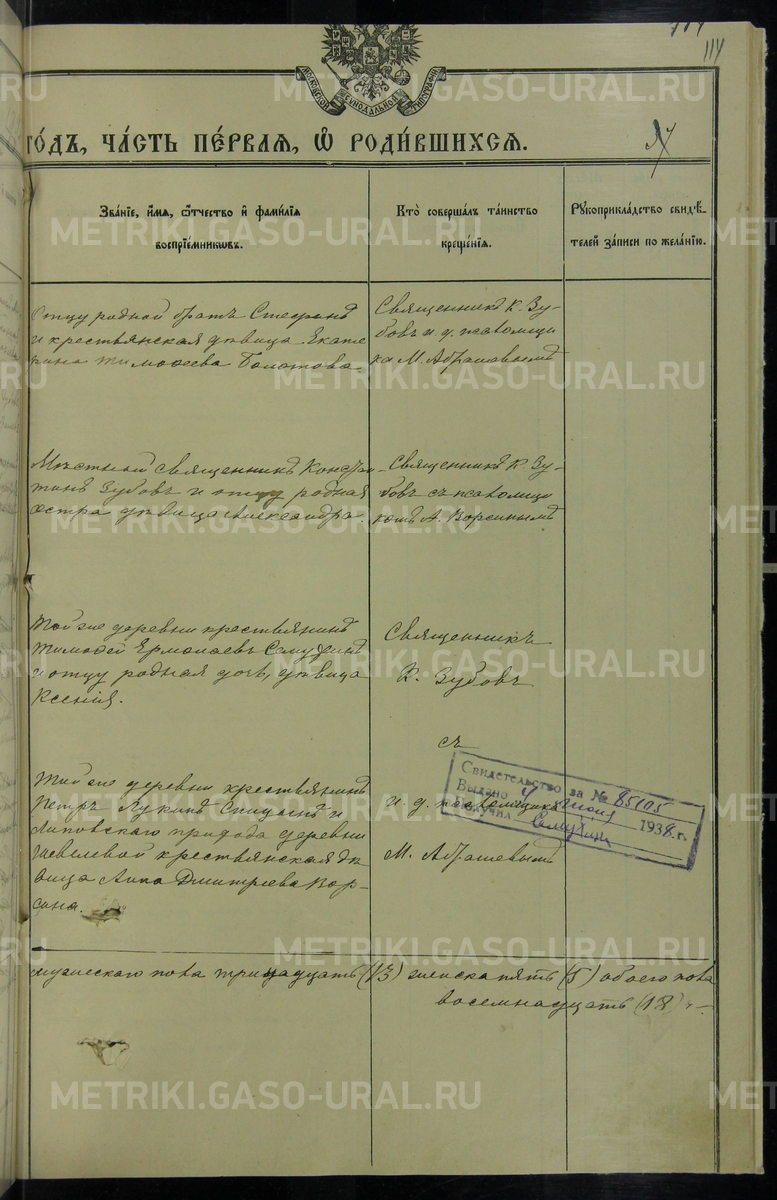 114
МОСКОВСКОЙ СѴНОДАЛЬНОЙ ТИПОГРАФІИ
ГОДЪ, ЧАСТЬ ПЕРВАЯ, Ѡ РОДИВШИХСЯ.
Званіе, имя, ѻтчество и фамилія
воспріемниковъ.
Кто совершалъ таинство
крещенія.
Рукоприкладство свидѣ-
телей записи по желанію.
Отцу родной братъ Стефанъ
и крестьянская дѣвица Екате
рина Тимофеева Болотова.
Священникъ К. Зу-
бовъ и. д. псаломщи
ка М. Абрашевымъ
Мѣстный священникъ Констан-
тинъ Зубовъ и отцу родная
сестра дѣвица Александра.
Священникъ К. Зу-
бовъ съ псаломщи
комъ А. Ворсинымъ
Той же деревни крестьянинъ
Тимофей Ермолаевъ
и отцу родная дочь, дѣвица
Ксенія.
Священникъ
К. Зубовъ
съ
Той же деревни крестьянинъ
Петръ Лукинъ Спицынъ и
Липовскаго прихода деревни
Шевелевой крестьянская дѣ
вица Анна Дмитріева Вор-
сина.
и. д. псаломщика
М. Абрашевымъ
Свидетельство за № 85105
Выдано 4 июня 1938 г.
Получил
мужескаго пола тринадцать (13) женска пять (5) обоего пола
восемнадцать (18)
METRIKI.GASO-URAL.RU